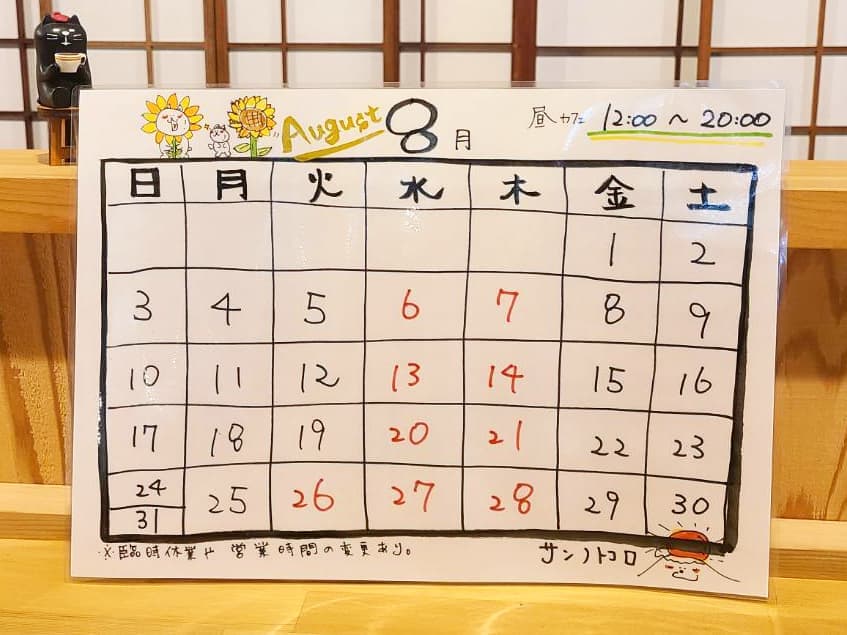 August 8月 昼カフェ 12:00 ~ 20:00
日 月 火 水 木 金 土
1 2
3 4 5 6 7 8 9
10 11 12 13 14 15 16
17 18 19 20 21 22 23
24 25 26 27 28 29 30
31
※臨時休業や営業時間の変更あり。 サンノトコロ